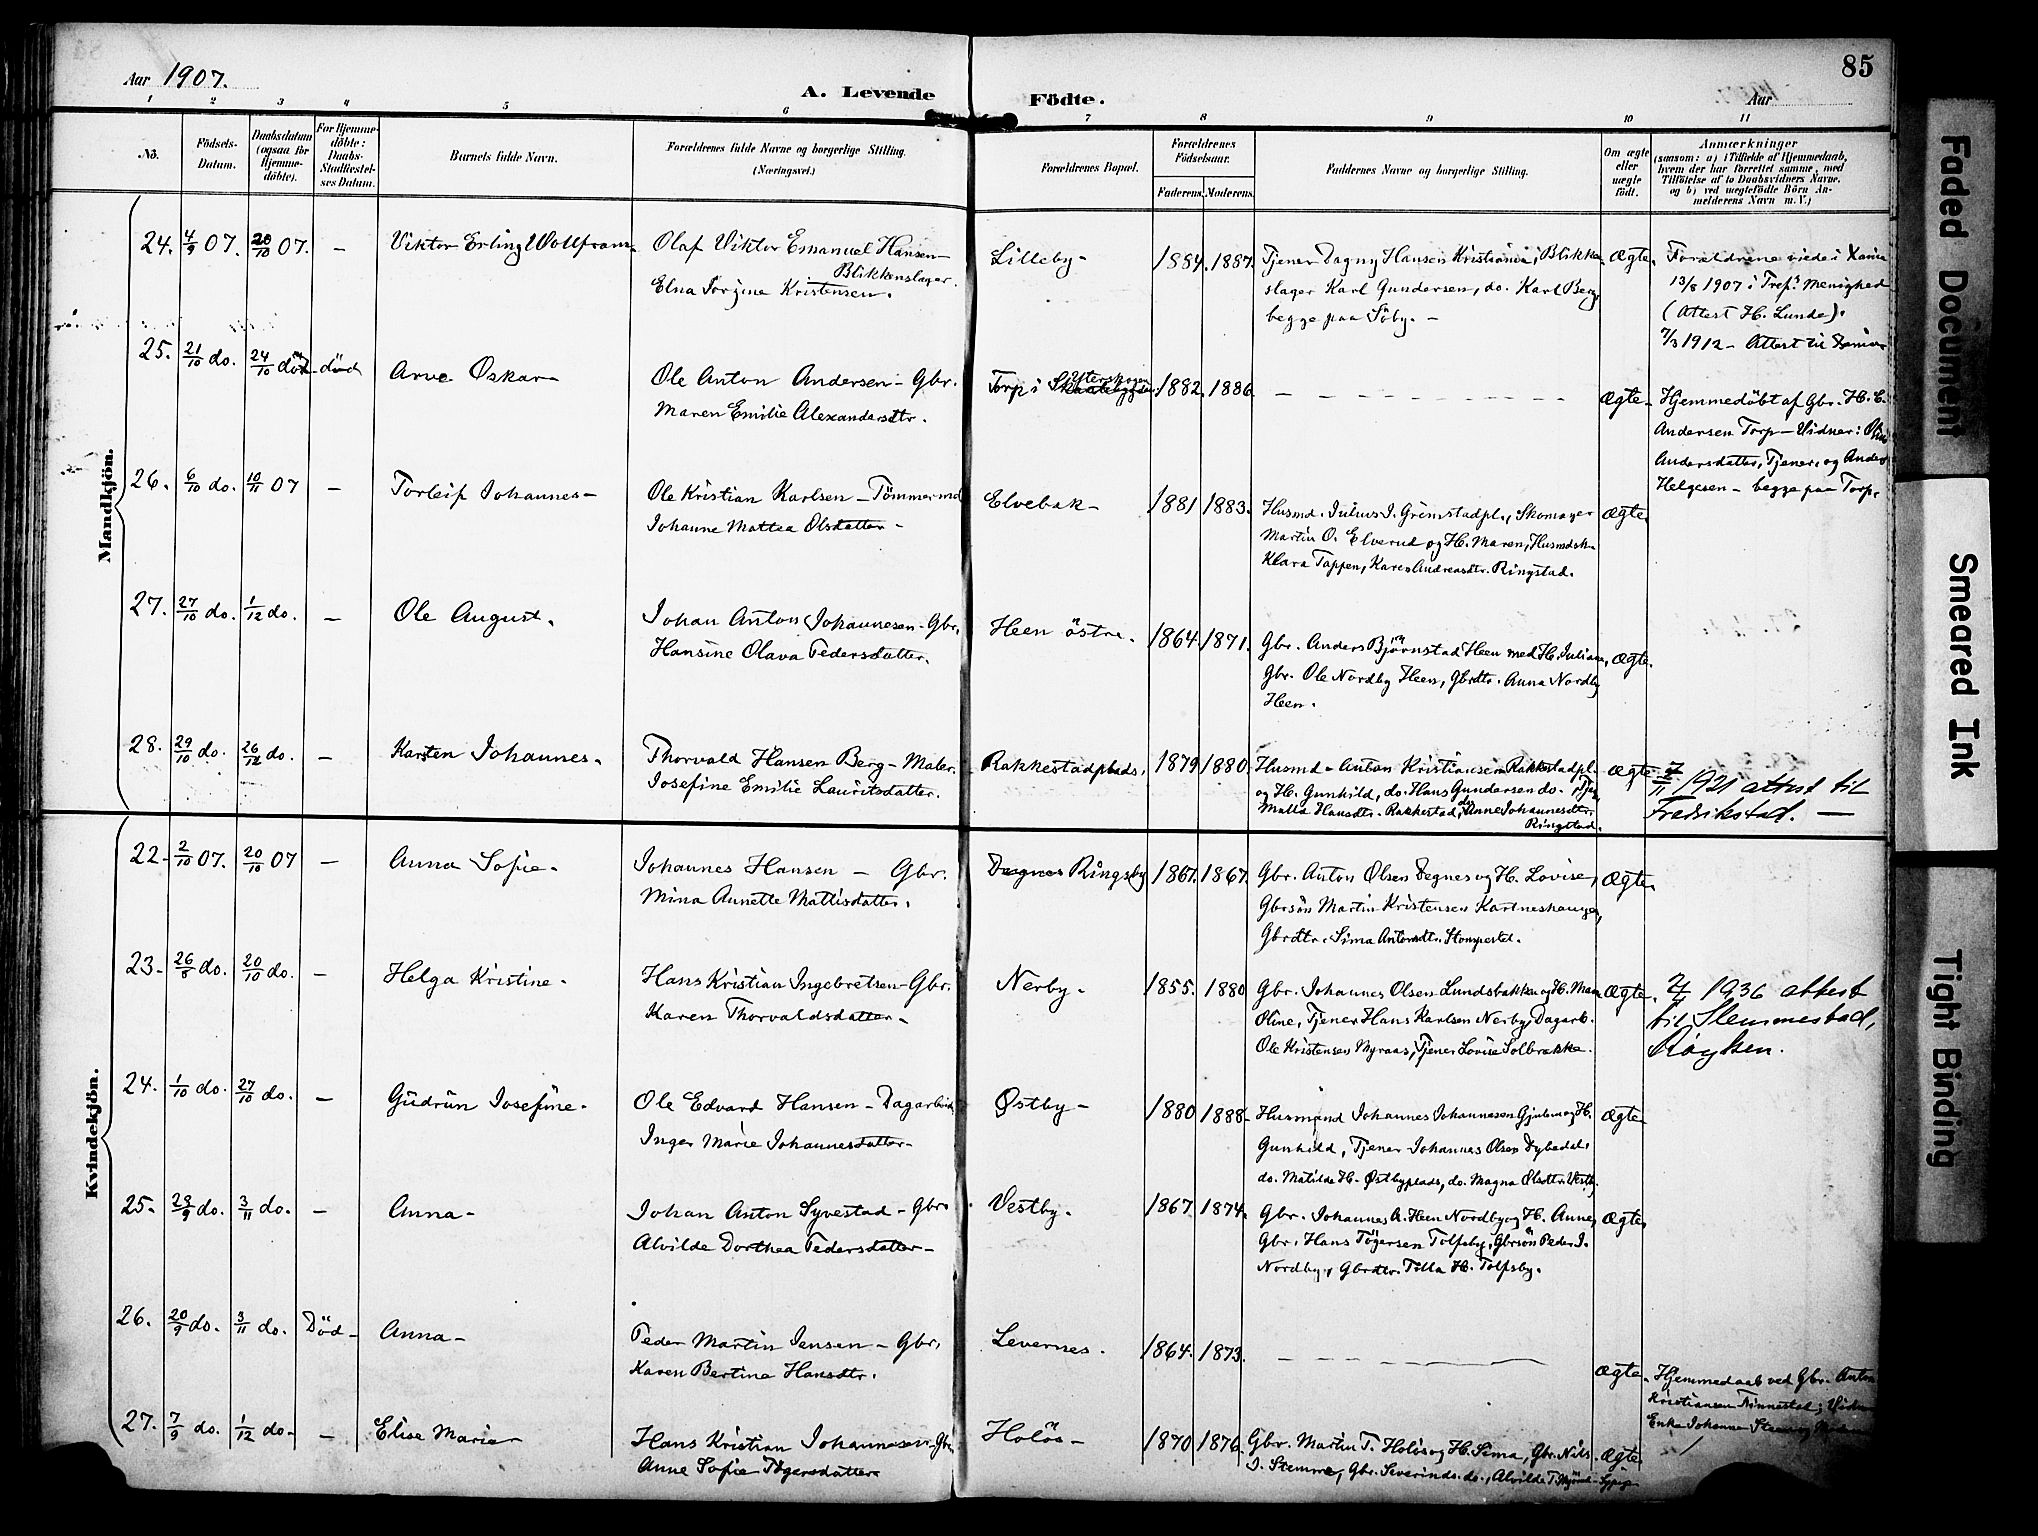 Aar 1907.
A. Levende Födte.
Aar
85
1 2 3 4 5 6 7 8 9 10 11
No.
Födsels-
Datum.
Daabsdatum
(ogsaa for
Hjemme-
döbte).
For Hjemme-
döbte:
Daabs-
Stadfæstel-
ses Datum.
Barnets fulde Navn.
Forældrenes fulde Navne og borgerlige Stilling.
(Næringsvei.)
Forældrenes Bopæl.
Forældrenes
Födselsaar.
Faderens. Moderens.
Faddernes Navne og borgerlige Stilling.
Om ægte
eller
uægte
født.
Anmærkninger
(saasom: a) i Tilfælde af Hjemmedaab,
hvem der har forrettet samme, med
Tilföielse af to Daabsvidners Navne,
og b) ved uægtefödte Börn An-
melderens Navn m. V.)
Mandkjön.
24. 4/9 07. 20/10 07. – Viktor Erling Wollfram. Olaf Viktor Emanuel Hansen –
Blikkenslager.
Elna Jorgine Kristensen.
Lilleby – 1884. 1887. Tjener Dagny Hansen Kristiania, Blikken-
slager Karl Gundersen, do. Karl Berg
begge paa Söby. –
Ægte. Forældrene viede i Xania
13/8 1907 i Tref. Menighed
(Attest H. Lunde).
7/3 1912 – Attest til Xania
25. 21/10 do. 24/10 död död Arve Oskar – Ole Anton Andersen – Gbr.
Maren Emilie Alexandersdtr.
Torp i Ytterskogen 1882. 1886. – – – – Ægte –
Hjemmedöbt af Gbr. H. C.
Andersen Torp – Vidner:
Andersdatter, Tjener, og Anders
Helgesen – begge paa Torp.
26. 6/10 do. 10/11 07 – Torleif Johannes – Ole Kristian Karlsen – Tömmermd
Johanne Mattea Olsdatter –
Elvebak – 1881 1883. Husmd. Julius J. Grimstadpl., Skomager
Martin O. Elverud og H. Maren, Husmdsk.
Klara Tappen, Karen Andreasdtr. Ringstad.
Ægte.
27. 27/10 do. 1/12 do. – Ole August. Johan Anton Johannesen – Gbr.
Hansine Olava Pedersdatter.
Heen östre. 1864. 1871. Gbr. Anders Björnstad Heen med H. Juliane,
Gbr. Ole Nordby Heen, Gbrdtr. Anna Nordby
Heen.
Ægte.
28. 29/10 do. 26/12 do. – Karsten Johannes. Thorvald Hansen Berg – Maler.
Josefine Emilie Lauritsdatter.
Rakkestadplads. 1879 1880. Husmd. Anton Kristiansen Rakkestadpl.
og H. Gunhild, do. Hans Gundersen do. Tjen.
Malla Hansdtr. Rakkestad, do. Anne Johannesdtr.
Ringstad.
Ægte 7/11 1921 attest til
Fredrikstad. –
Kvindekjön.
22. 2/10 07. 20/10 07 – Anna Sofie. Johannes Hansen – Gbr.
Mina Annette Mattisdatter.
Degnes Ringsby 1867. 1867. Gbr. Anton Olsen Degnes og H. Lovise,
Gbrsön Martin Kristensen Kartneshaugen,
Gbrdtr. Sima Antonsdtr. Stomperud.
Ægte.
23. 26/8 do. 20/10 do. – Helga Kristine. Hans Kristian Ingebretsen – Gbr.
Karen Thorvaldsdatter –
Nerby. 1855. 1880 Gbr. Johannes Olsen Lundsbakken og H. Maren
Oline, Tjener Hans Karlsen Nerby, Dagarb.
Ole Kristensen Myraas, Tjener Lovise Solbrække.
Ægte. 1936 attest
til Slemmestad,
Røyken.
24. 1/10 do. 27/10 do. – Gudrun Josefine. Ole Edvard Hansen – Dagarbeid.
Inger Marie Johannesdatter –
Østby – 1880 1888. Husmand Johannes Johannesen og H.
Gunhild, Tjener Johannes Olsen Dybedal,
do. Matilde H. Østbyplads, do. Magna Olsdtr. Vestby.
Ægte.
25. 23/9 do. 3/11 do. – Anna – Johan Anton Syvestad – Gbr.
Alvilde Dorthea Pedersdatter –
Vestby. 1867. 1874. Gbr. Johannes A. Heen Nordby og H. Anne,
Gbr. Hans Tögersen Tolfsby, Gbrsön Peder J.
Nordby, Gbrdtr. Tilla H. Tolfsby.
Ægte.
26. 20/9 do. 3/11 do. Död – Anna – Peder Martin Jensen – Gbr.
Karen Bertine Hansdtr.
Levernes. 1864. 1873. – – – –
Ægte. Hjemmedaab ved Gbr. Anton
Kristiansen Finnestad; Vidner
Enke Johanne
27. 7/9 do. 1/12 do – – Elise Marie Hans Kristian Johannesen – Gbr.
Anne Sofie Tögersdatter
Holös – 1870 1876. Gbr. Martin T. Holös og H. Sima, Gbr. Nils
J. Stemme, Gbr. Severin do. do., Alvilde T.
Ægte.
Faded Document
Smeared Ink
Tight Binding